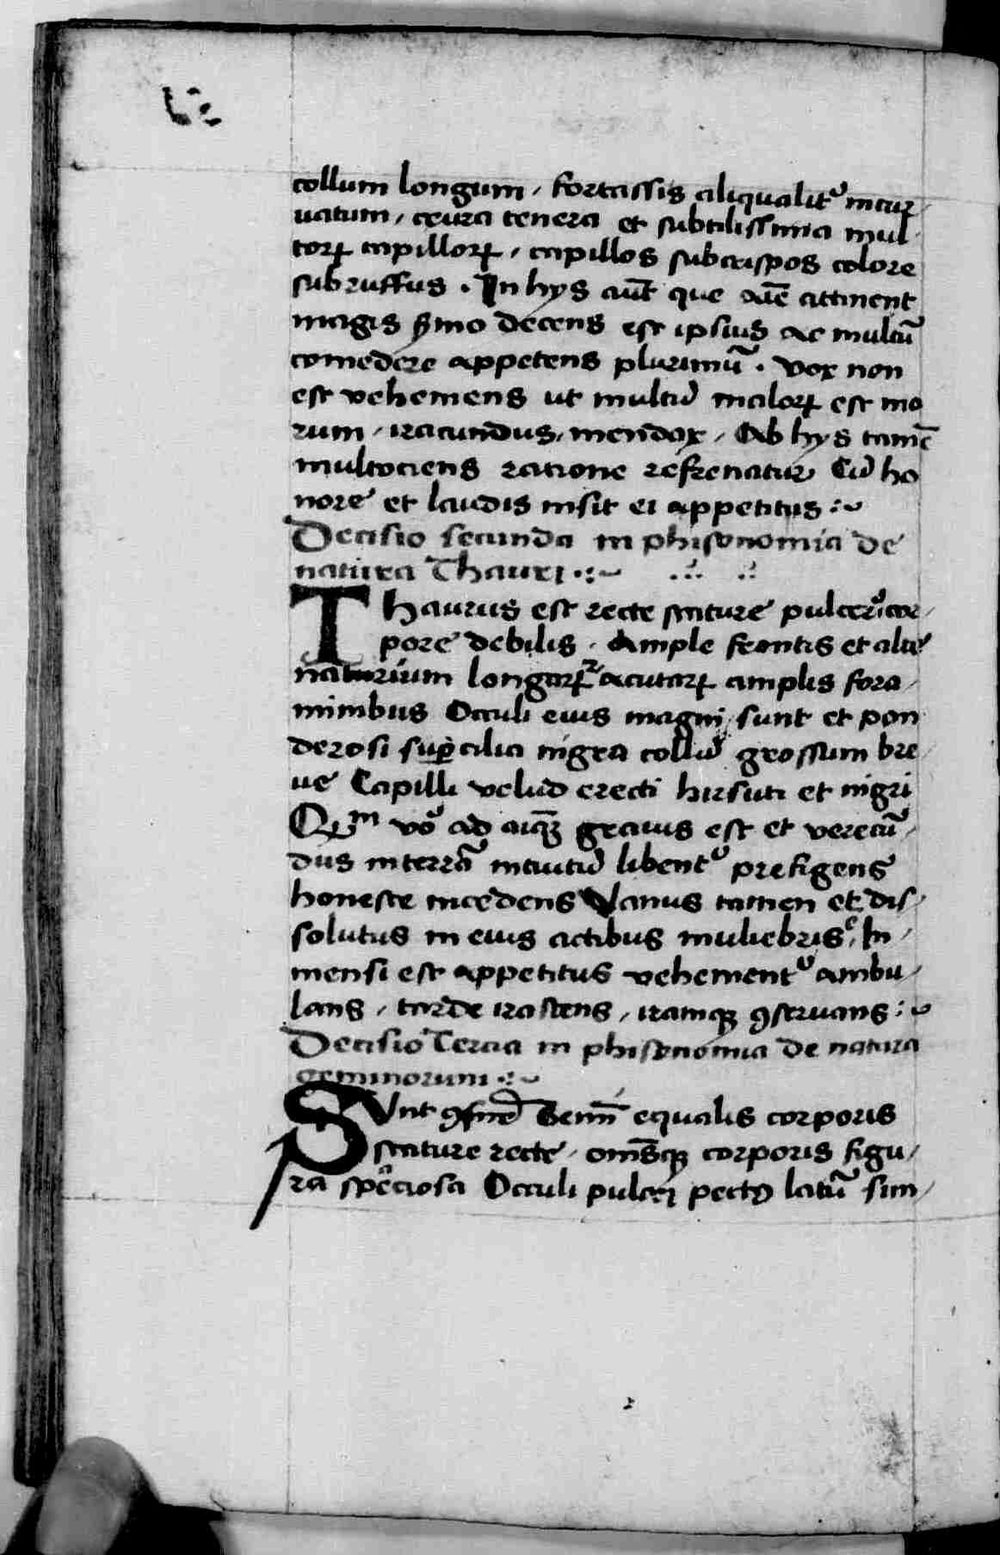 collum longum / fortassis aliqualit᷑ incur /
uatum / crura tenera et subtilissima mul
torꝝ capillorꝝ / capillos subcrispos colore
subruffus . In hys aūt que attinent
magis decens est ipsius ac multū
comedere appetens plurimū . vox non
est vehemens ut multū malorꝝ est mo
rum / iracundus / mendax / Ab hys tamē
multociens ratione refrenatur Cū ho
nore et laudis insit ei appetitus :~
Decisio secunda in phisonomia de
natura Thauri .:~
Thaurus est recte stature pulcer cor /
pore debilis . Ample frontis et alte
narium longarꝝ acutarꝝ amplis fora /
minibus Occuli eius magni sunt et pon
derosi suꝑcilia nigra collū grossum bre /
ue Capilli velud erecti hirsuti et nigri
Qm̄ vo᷑ ad grauis est et verecū /
dus in terrā intuitū libent᷑ prefigens
honeste incedens Vanus tamen et dis /
solutus in eius actibus muliebris / In /
mensi est appetitus vehement᷑ ambu /
lans / tarde irascens / iramqꝫ ꝯseruans :~
Decisio Tercia in phisonomia de natura
geminorum .:~
Sunt Gemī equalis corporis
stature recte / om̄sqꝫ corporis figu /
ra speciosa Occuli pulcri pectꝰ latū sim /